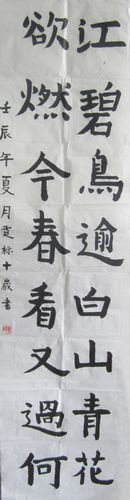 江碧鳥逾白山青花
欲燃今春看又過何
壬辰年夏月霆标十歲書